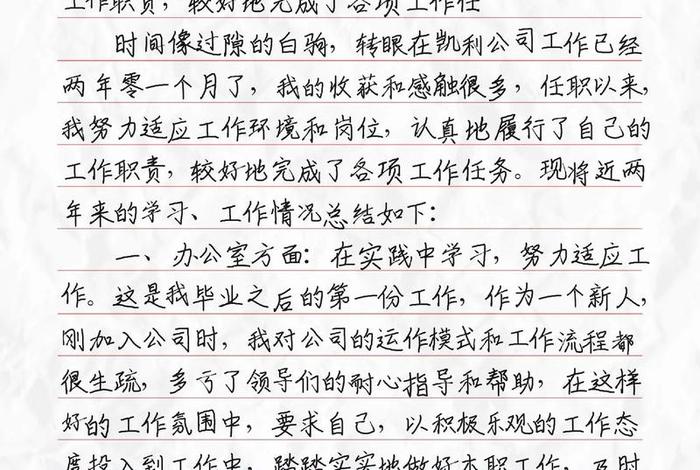 工作职责，较好地完成了各项工作任
时间像过隙的白驹，转眼在凯利公司工作已经
两年零一个月了，我的收获和感触很多，任职以来，
我努力适应工作环境和岗位，认真地履行了自己的
工作职责，较好地完成了各项工作任务。现将近两
年来的学习、工作情况总结如下：
一、办公室方面：在实践中学习，努力适应工
作。这是我毕业之后的第一份工作，作为一个新人，
刚加入公司时，我对公司的运作模式和工作流程都
很生疏，多亏了领导们的耐心指导和帮助，在这样
好的工作氛围中，要求自己，以积极乐观的工作态
度投入到工作中，踏踏实实地做好本职工作，及时